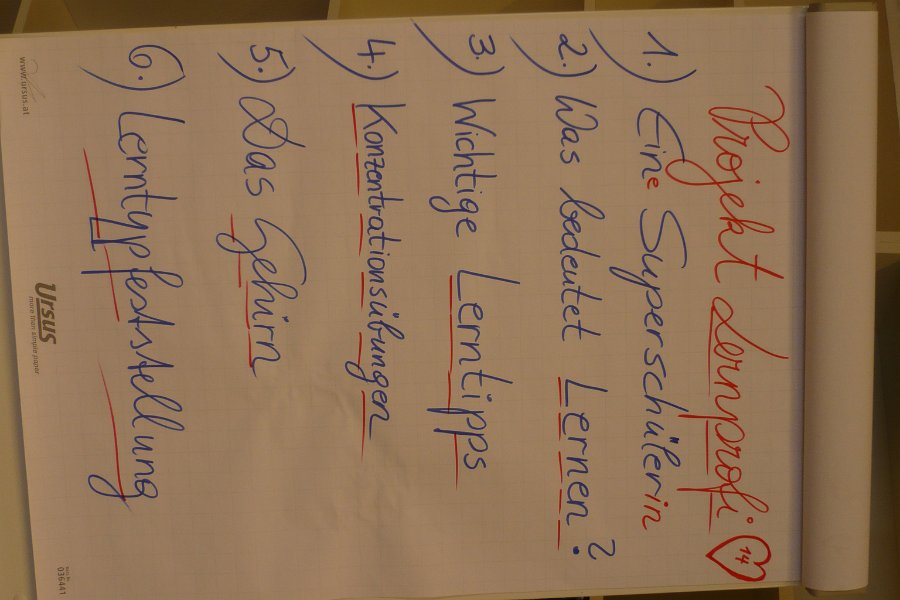 Projekt Lernprofi 14
1.) Eine Superschülerin
2.) Was bedeutet Lernen?
3.) Wichtige Lerntipps
4.) Konzentrationsübungen
5.) Das Gehirn
6.) Lerntypfeststellung
www.ursus.at
Ursus
more than simple paper
036441